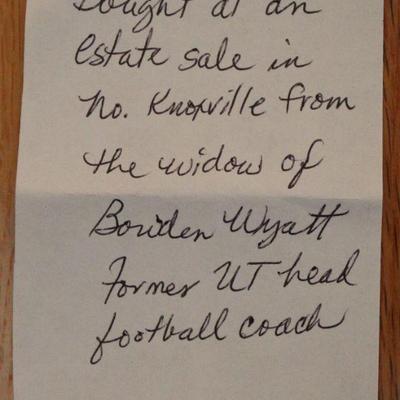 Bought at an
estate sale in
No. Knoxville from
the widow of
Bowden Wyatt
Former UT head
football coach